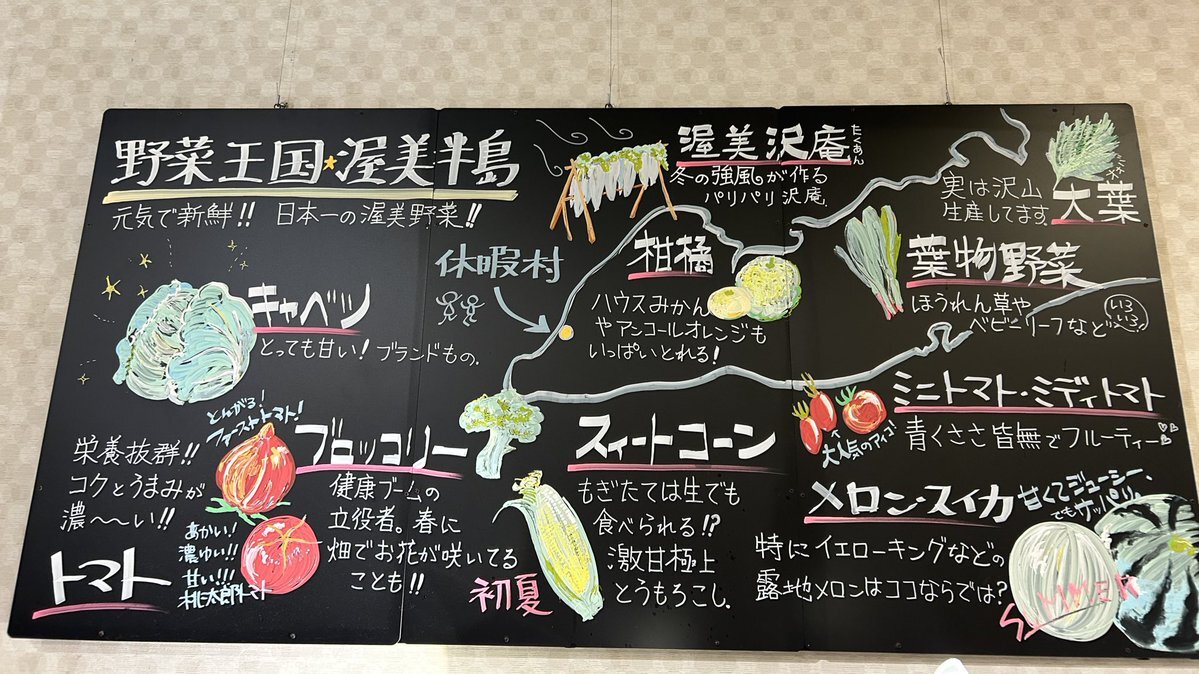 野菜王国★渥美半島
元気で新鮮!! 日本一の渥美野菜!!
キャベツ
とっても甘い! ブランドもの。
とんがる!
ファーストトマト!
栄養抜群!!
コクとうまみが
濃〜〜い!!
トマト
あかい!
濃ゆい!!
甘い!!!
桃太郎トマト
ブロッコリー
健康ブームの
立役者。春に
畑でお花が咲いてる
ことも!!
休暇村
渥美沢庵
たくあん
冬の強風が作る
パリパリ沢庵。
柑橘
ハウスみかん
やアンコールオレンジも
いっぱいとれる!
スイートコーン
もぎたては生でも
食べられる!?
激甘極上
とうもろこし。
初夏
実は沢山
生産してます。
大葉
葉物野菜
ほうれん草や
ベビーリーフなど
いろいろ
ミニトマト・ミディトマト
大人気のアイコ!
青くささ皆無でフルーティー
メロン・スイカ
甘くてジューシー、
でもサッパリ。
特にイエローキングなどの
露地メロンはココならでは?
SUMMER